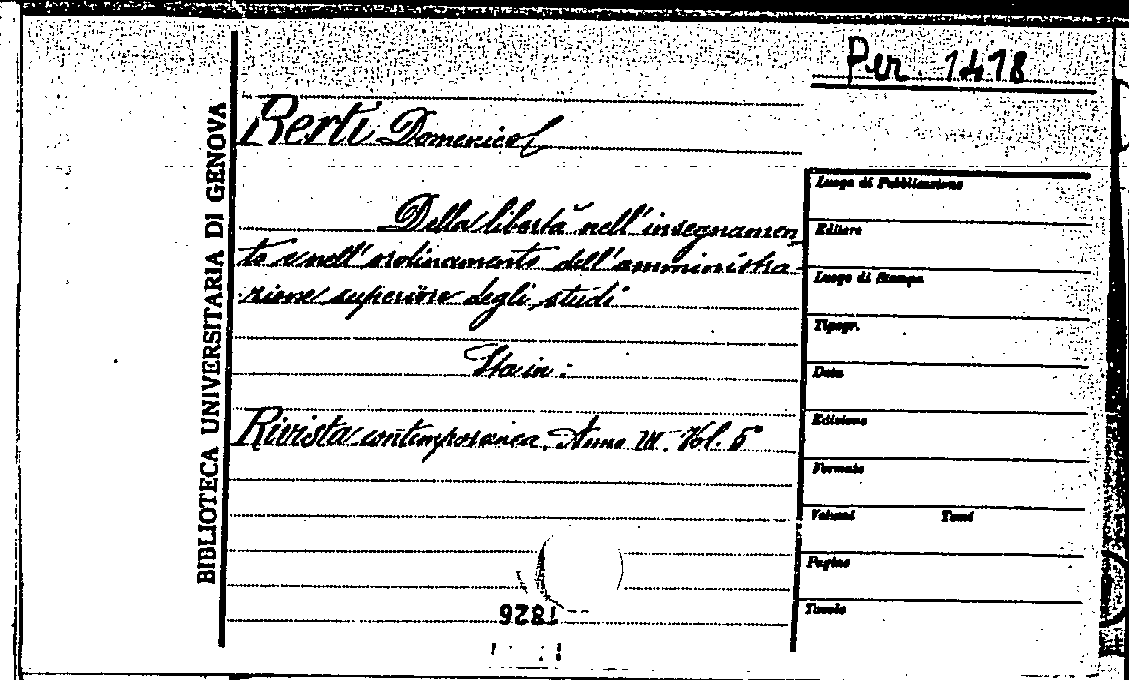 Per. 1478
BIBLIOTECA UNIVERSITARIA DI GENOVA
Berti Domenico
Della libertà nell'insegnamen
to e nell'ordinamento dell'amministra-
zione superiore degli studi
Sta in:
Rivista contemporanea. Anno III. Vol. 5°
1826
Luogo di Pubblicazione
Editore
Luogo di Stampa
Tipogr.
Data
Edizione
Formato
Volumi Tomi
Pagine
Tavole